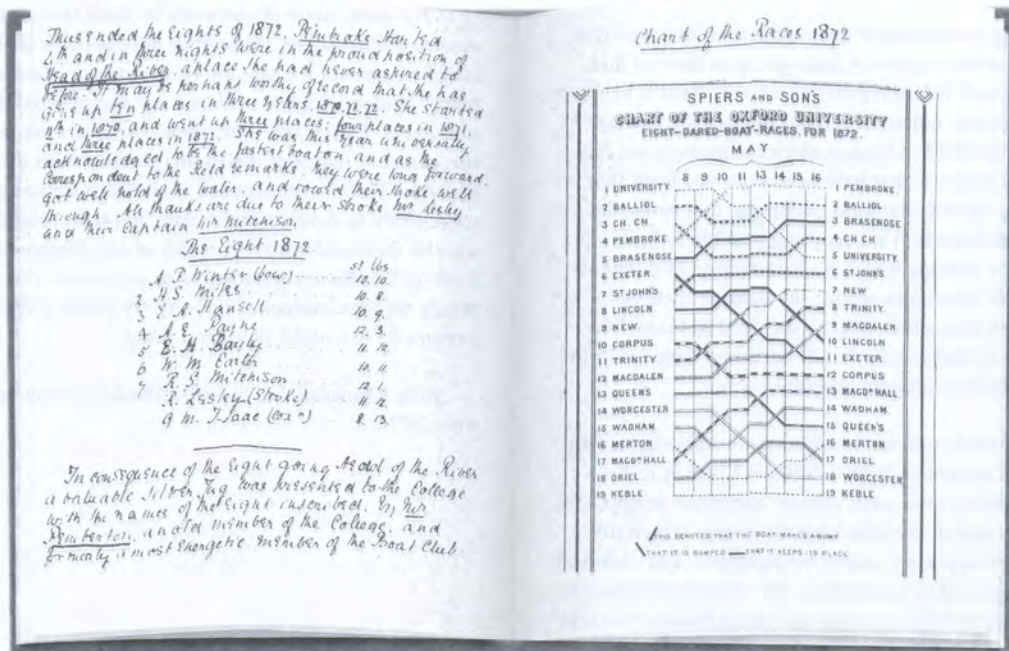 Thus ended the Eights of 1872. Pembroke started
4th and in three nights were in the proud position of
Head of the River, a place she had never aspired to
before. It may be perhaps worthy of record that she has
gone up ten places in three years, 1870.71.72. She started
11th in 1870, and went up three places; four places in 1871,
and three places in 1872. She was this year universally
acknowledged to be the fastest boat on, and as the
Correspondent to the Field remarks, they were long forward,
got well hold of the water, and rowed their stroke well
through. All thanks are due to their Stroke Mr Lesley
and their Captain Mr Mitchison.
The Eight 1872
st lbs
A. P. Winter (bow) 10. 10.
2. H. S. Miles 10. 8.
3. E. A. Hansell 10. 9.
4. A. E. Payne 12. 3.
5. E. H. Bayly 11. 12.
6. W. M. Carter 10. 11.
7. R. S. Mitchison 12. 1.
R. Lesley (Stroke) 11. 12.
M. Isaac (Cox'n) 8. 13.
In consequence of the Eight going Head of the River
a valuable Silver Jug was presented to the College
with the names of the Eight inscribed. By Mr
Pemberton, an old member of the College, and
formerly a most energetic member of the Boat Club.
Chart of the Races 1872
SPIERS AND SON'S
CHART OF THE OXFORD UNIVERSITY
EIGHT-OARED-BOAT-RACES, FOR 1872.
MAY
8 9 10 11 13 14 15 16
1 UNIVERSITY 1 PEMBROKE.
2 BALLIOL 2 BALLIOL
3 CH. CH. 3 BRASENOSE
4 PEMBROKE 4 CH. CH.
5 BRASENOSE 5 UNIVERSITY.
6 EXETER. 6 ST JOHN'S.
7 ST JOHN'S 7 NEW
8 LINCOLN 8 TRINITY.
9 NEW 9 MAGDALEN.
10 CORPUS. 10 LINCOLN
11 TRINITY 11 EXETER.
12 MAGDALEN 12 CORPUS
13 QUEEN'S 13 MAGDN HALL
14 WORCESTER 14 WADHAM.
15 WADHAM 15 QUEEN'S
16 MERTON 16 MERTON
17 MAGDN HALL 17 ORIEL
18 ORIEL 18 WORCESTER
19 KEBLE 19 KEBLE
DENOTES THAT THE BOAT MAKES A BUMP
THAT IT IS BUMPED THAT IT KEEPS ITS PLACE